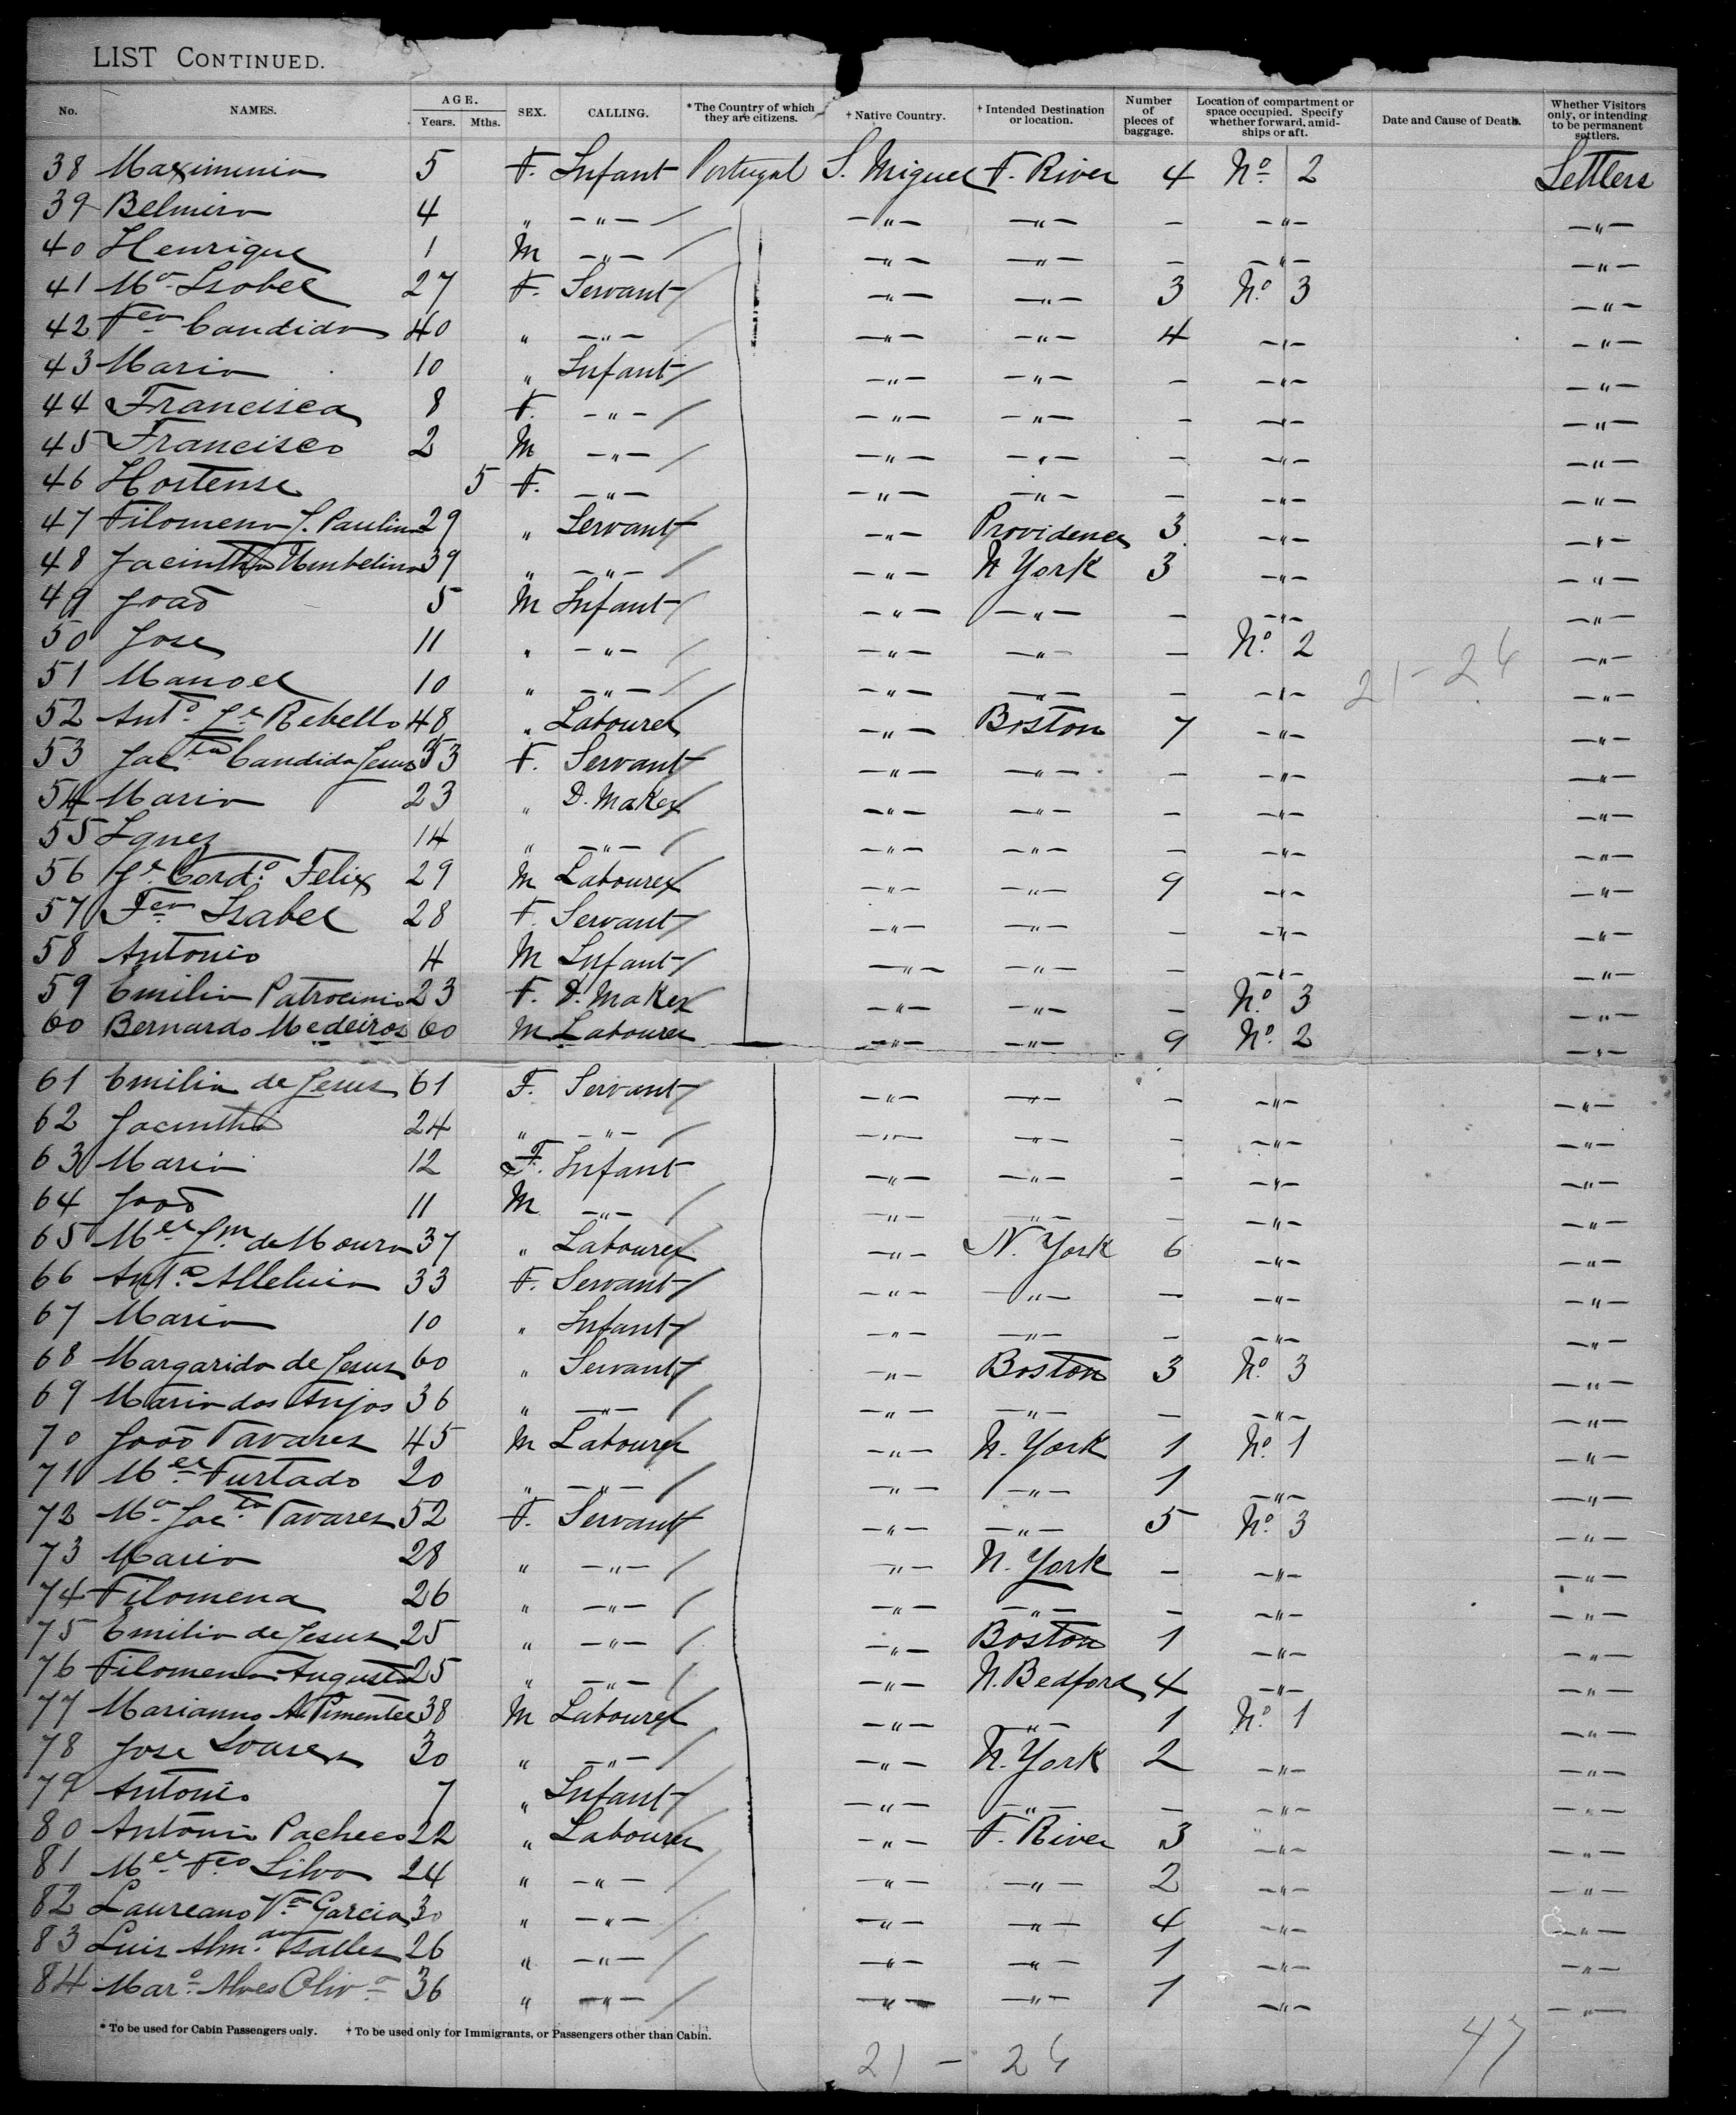 LIST CONTINUED.
No. NAMES. AGE. Years. Mths. SEX. CALLING. *The Country of which they are citizens. †Native Country. †Intended Destination or location. Number of pieces of baggage. Location of compartment or space occupied. Specify whether forward, amidships or aft. Date and Cause of Death. Whether Visitors only, or intending to be permanent settlers.
38 Maximinia 5 F. Infant Portugal S. Miguel F. River 4 Nº 2 Settlers
39 Belmira 4 " -"- -"- -"- - -"- -"-
40 Henrique 1 M -"- -"- -"- - -"- -"-
41 Mª Isabel 27 F. Servant -"- -"- 3 Nº 3 -"-
42 Fca Candida 40 " -"- -"- -"- 4 -"- -"-
43 Maria 10 " Infant -"- -"- - -"- -"-
44 Francisca 8 F. -"- -"- -"- - -"- -"-
45 Francisco 2 M -"- -"- -"- - -"- -"-
46 Hortense 5 F. -"- -"- -"- - -"- -"-
47 Filomena J. Paulina 29 " Servant -"- Providence 3 -"- -"-
48 Jacintha Umbelina 39 " -"- -"- N York 3 -"- -"-
49 João 5 M Infant -"- -"- - -"- -"-
50 Jose 11 " -"- -"- -"- - Nº 2 -"-
51 Manoel 10 " -"- -"- -"- - -"- 21-26 -"-
52 Antº Je Rebello 48 " Labourer -"- Boston 7 -"- -"-
53 Jacta Candida Jesus 53 F. Servant -"- -"- - -"- -"-
54 Maria 23 " D. Maker -"- -"- - -"- -"-
55 Ignez 14 " -"- -"- -"- - -"- -"-
56 Je Cordº Felix 29 M Labourer -"- -"- 9 -"- -"-
57 Fca Isabel 28 F. Servant -"- -"- - -"- -"-
58 Antonio 4 M Infant -"- -"- - -"- -"-
59 Emilia Patrocinio 23 F. D. Maker -"- -"- - Nº 3 -"-
60 Bernardo Medeiros 60 M Labourer -"- -"- 9 Nº 2 -"-
61 Emilia de Jesus 61 F. Servant -"- -"- - -"- -"-
62 Jacintha 24 " -"- -"- -"- - -"- -"-
63 Maria 12 F. Infant -"- -"- - -"- -"-
64 João 11 M -"- -"- -"- - -"- -"-
65 Mel Jm de Moura 37 " Labourer -"- N. York 6 -"- -"-
66 Antª Alleluia 33 F. Servant -"- -"- - -"- -"-
67 Maria 10 " Infant -"- -"- - -"- -"-
68 Margarida de Jesus 60 " Servant -"- Boston 3 Nº 3 -"-
69 Maria dos Anjos 36 " -"- -"- -"- - -"- -"-
70 João Tavares 45 M Labourer -"- N. York 1 Nº 1 -"-
71 Mel Furtado 20 " -"- -"- -"- 1 -"- -"-
72 Mª Jacta Tavares 52 F. Servant -"- -"- 5 Nº 3 -"-
73 Maria 28 " -"- -"- N. York - -"- -"-
74 Filomena 26 " -"- -"- -"- - -"- -"-
75 Emilia de Jesus 25 " -"- -"- Boston 1 -"- -"-
76 Filomena Augusta 25 " -"- -"- N. Bedford 4 -"- -"-
77 Marianno A. Pimentel 38 M Labourer -"- -"- 1 Nº 1 -"-
78 Jose Soares 30 " -"- -"- N. York 2 -"- -"-
79 Antonio 7 " Infant -"- -"- - -"- -"-
80 Antonio Pacheco 22 " Labourer -"- F. River 3 -"- -"-
81 Mel Fco Silva 24 " -"- -"- -"- 2 -"- -"-
82 Laureano Vª Garcia 30 " -"- -"- -"- 4 -"- -"-
83 Luis 26 " -"- -"- -"- 1 -"- -"-
84 Marº Alves Olivª 36 " -"- -"- -"- 1 -"- -"-
*To be used for Cabin Passengers only. †To be used only for Immigrants, or Passengers other than Cabin.
21 - 26 47